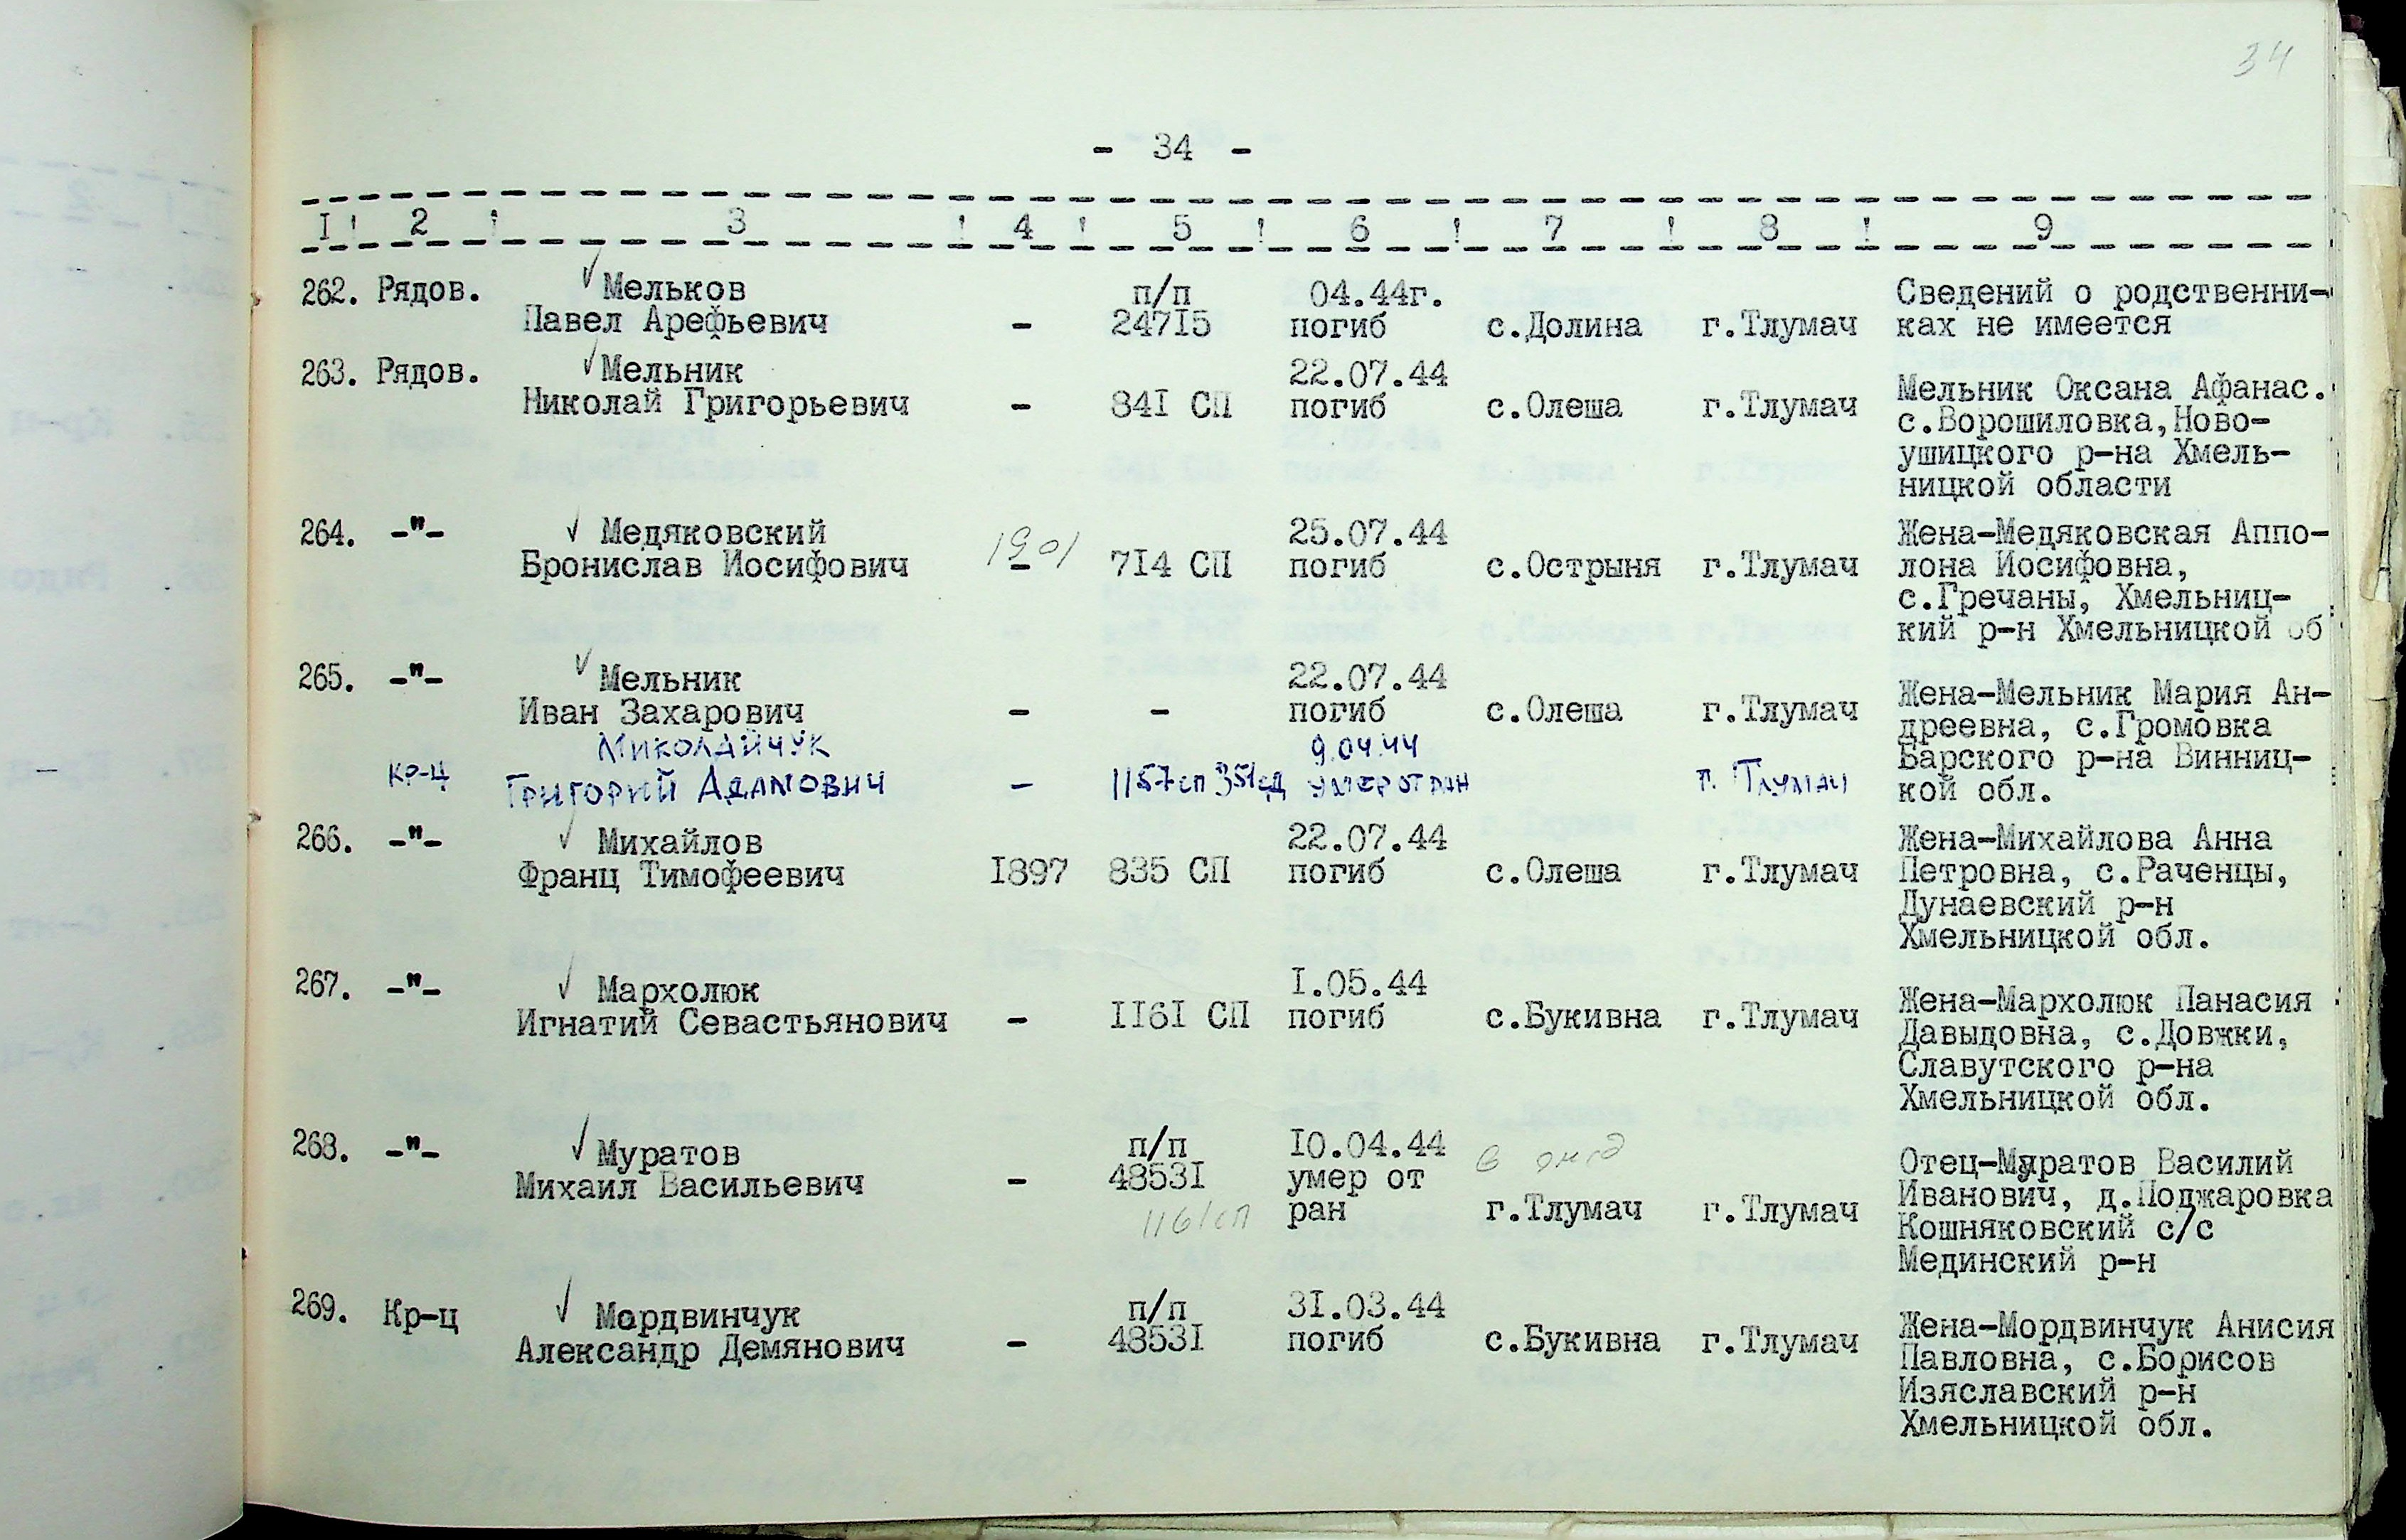 34
- 34 -
I ! 2 ! 3 ! 4 ! 5 ! 6 ! 7 ! 8 ! 9
262. Рядов. Мельков п/п 04.44г. Сведений о родственни-
Павел Арефьевич - 247I5 погиб с.Долина г.Тлумач ках не имеется
263. Рядов. Мельник 22.07.44
Николай Григорьевич - 84I СП погиб с.Олеша г.Тлумач Мельник Оксана Афанас.
с.Ворошиловка,Ново-
ушицкого р-на Хмель-
ницкой области
264. -"- Медяковский 1901 25.07.44 Жена-Медяковская Аппо-
Бронислав Иосифович - 7I4 СП погиб с.Острыня г.Тлумач лона Иосифовна,
с.Гречаны, Хмельниц-
кий р-н Хмельницкой об
265. -"- Мельник 22.07.44 Жена-Мельник Мария Ан-
Иван Захарович - - погиб с.Олеша г.Тлумач дреевна, с.Громовка
Миколайчук 9.04.44 Барского р-на Винниц-
кр-ц Григорий Адамович - 1157сп 351сд умер от ран г. Тлумач кой обл.
266. -"- Михайлов 22.07.44 Жена-Михайлова Анна
Франц Тимофеевич I897 835 СП погиб с.Олеша г.Тлумач Петровна, с.Раченцы,
Дунаевский р-н
Хмельницкой обл.
267. -"- Мархолюк I.05.44 Жена-Мархолюк Панасия
Игнатий Севастьянович - II6I СП погиб с.Букивна г.Тлумач Давыдовна, с.Довжки,
Славутского р-на
Хмельницкой обл.
268. -"- Муратов п/п I0.04.44 в Отец-Муратов Василий
Михаил Васильевич - 4853I умер от Иванович, д.Поджаровка
1161сп ран г.Тлумач г.Тлумач Кошняковский с/с
Мединский р-н
269. Кр-ц Мордвинчук п/п 3I.03.44 Жена-Мордвинчук Анисия
Александр Демянович - 4853I погиб с.Букивна г.Тлумач Павловна, с.Борисов
Изяславский р-н
Хмельницкой обл.